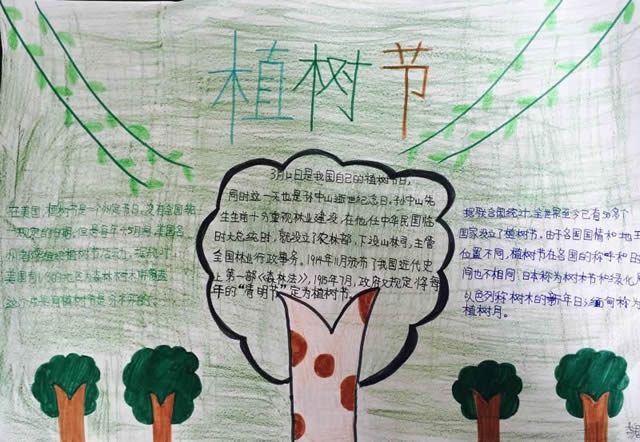 植树节
3月12日是我国自己的植树节日,
同时这一天也是孙中山逝世纪念日,孙中山先
生生前十分重视林业建设,在他任中华民国临
时大总统时,就设立了农林部,下设山林司,主管
全国林业行政事务。1914年11月颁布了我国近代史
上第一部《森林法》,1915年7月,政府又规定将每
年的“清明节”定为植树节。
在美国,植树节是一个州定节日,没有全国统
一规定的日期,但是每年4 5月间,美国各
州都会组织植树节活动。
美国有1/3的地区为森林树木所覆盖
据联合国统计,全世界至少已有50多个
国家设立了植树节。由于各国国情和地
位置不同,植树节在各国的称呼和
间也不相同,日本称为树木节和绿化
以色列称树木的新年日;缅甸称为
植树月。